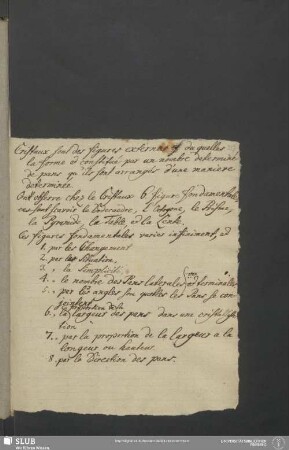 Cristaux sont des figures externes et ou quelles
la forme è constitué par un nombre determiné
de pans qu'ils sont arrangés d'une maniere
determinée.
On observe chez le Cristaux 6 figur: fondamentales
le Prisme,
la Pyramide, la Table, et la Lente.
Ces figures fondamentales varies infiniment, ad
1. par les Changement
2. par les Situation,
3. „ la Simplicité
4. „ le nombre des Pans laterales ou terminales
5. „ par les angles sou quelles les Pans se con
joientent
6. la proportion de la largeur des pans dans une cristallisa
tion
7. „ par la proportion de la largeur a la
longeur ou hauteur.
8. par le Direction des pans.
SLUB